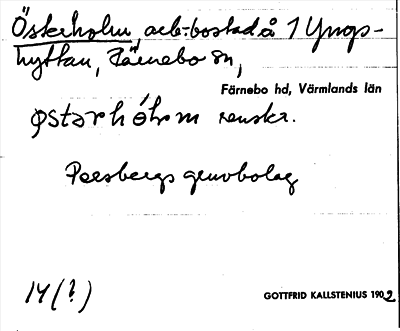 Österholm, arb.-bostad å 1 Yngs-
hyttan, Färnebo sn,
Färnebo hd, Värmlands län
østərhól̀m renskr.
Persbergs gruvbolag
14 (?)
GOTTFRID KALLSTENIUS 1902